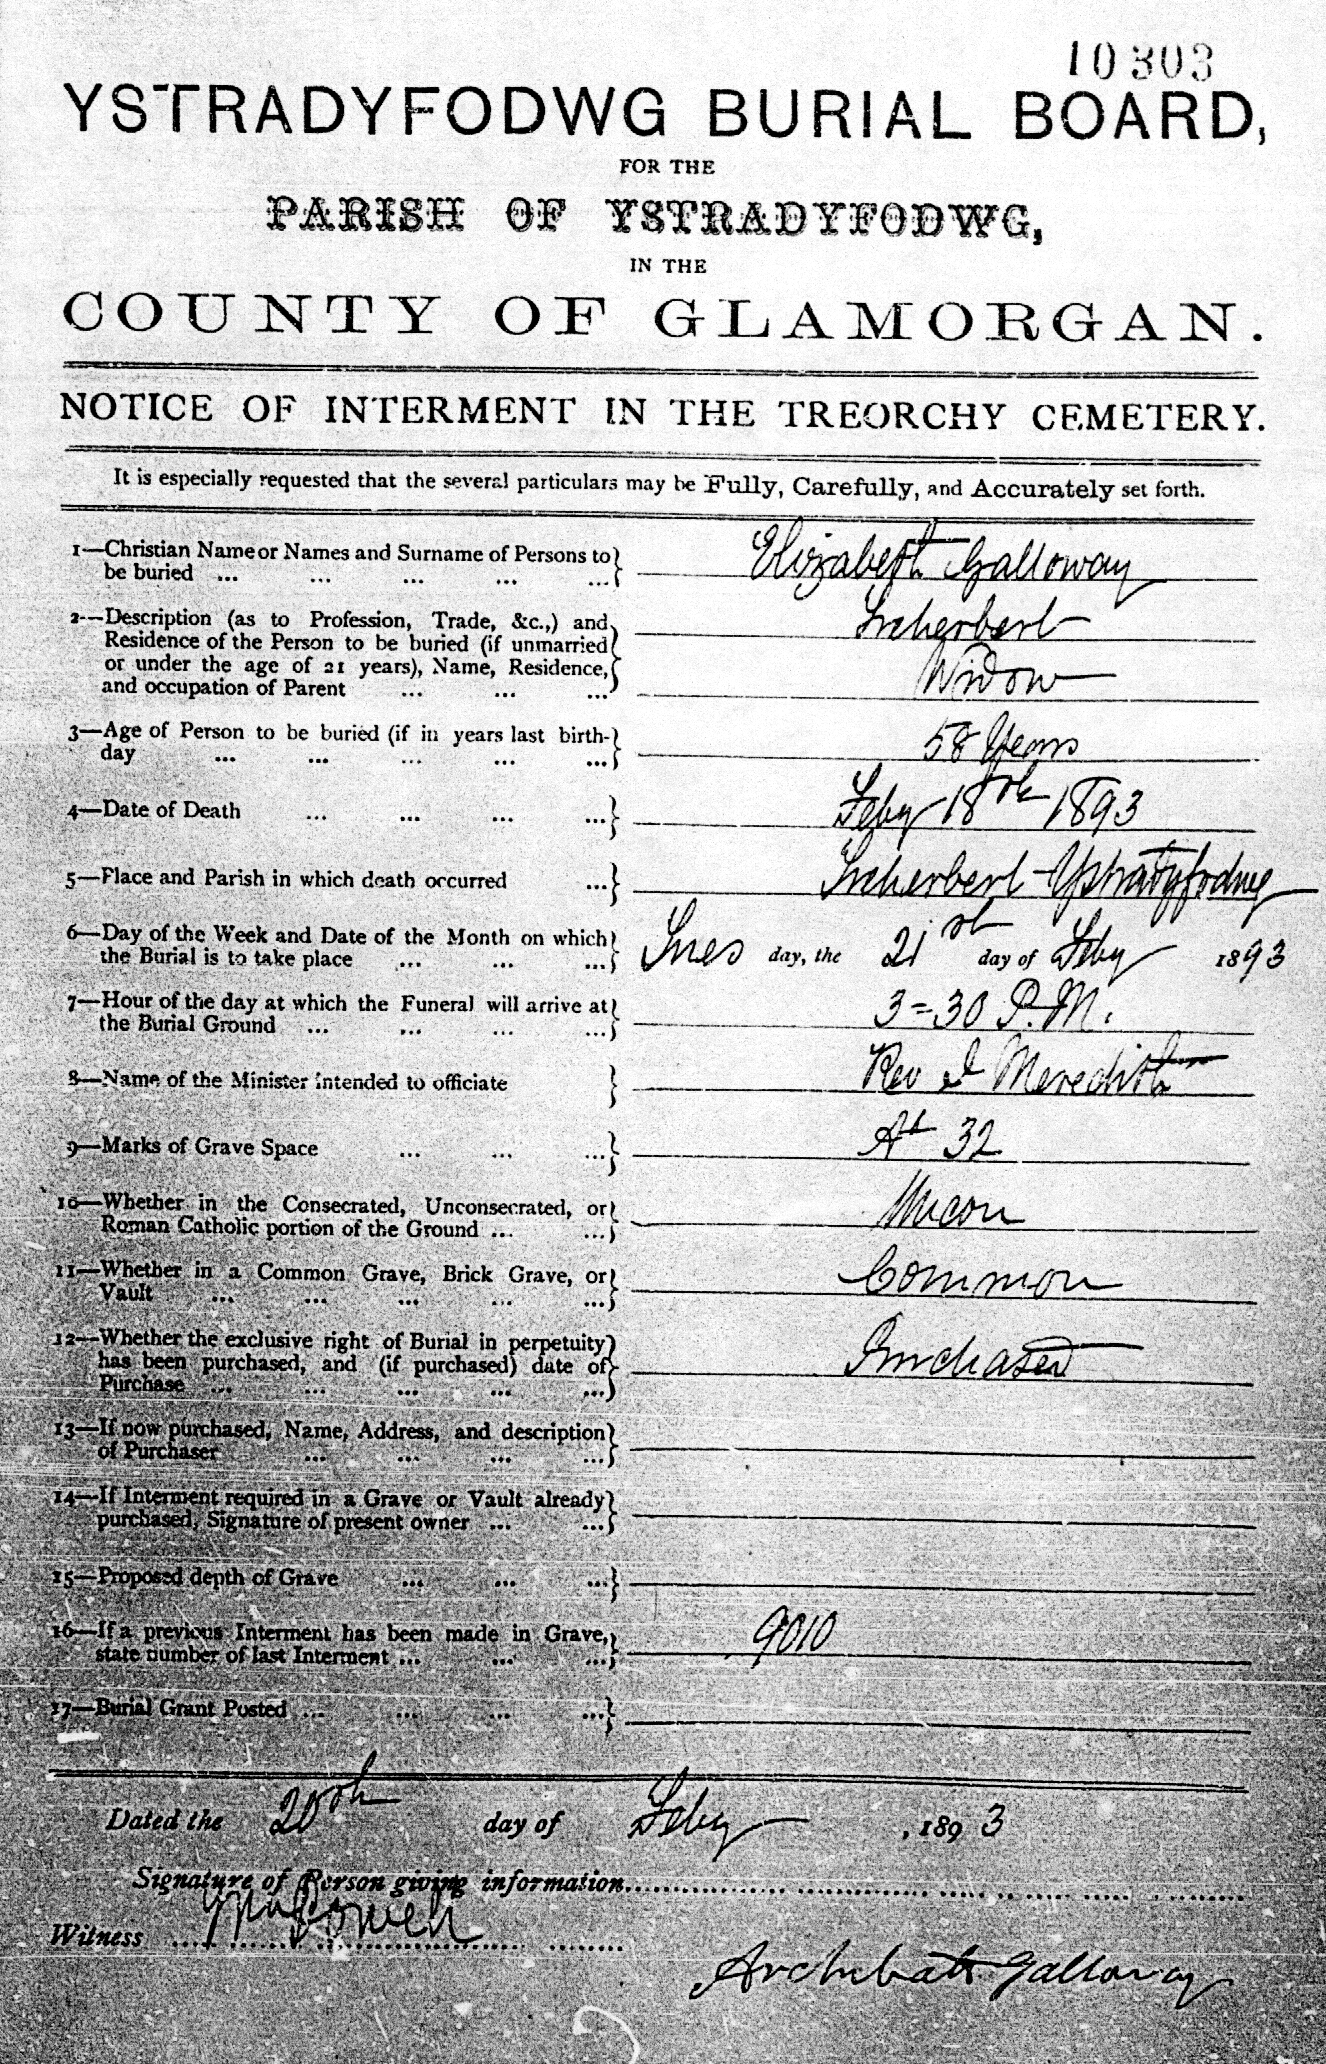 10303
YSTRADYFODWG BURIAL BOARD,
FOR THE
PARISH OF YSTRADYFODWG,
IN THE
COUNTY OF GLAMORGAN.
NOTICE OF INTERMENT IN THE TREORCHY CEMETERY.
It is especially requested that the several particulars may be Fully, Carefully, and Accurately set forth.
1—Christian Name or Names and Surname of Persons to be buried ... ... ... ... ... Elizabeth Galloway
2—Description (as to Profession, Trade, &c.,) and Treherbert
Residence of the Person to be buried (if unmarried
or under the age of 21 years), Name, Residence, Widow
and occupation of Parent ... ... ...
3—Age of Person to be buried (if in years last birth-
day ... ... ... ... ... 58 Years
4—Date of Death ... ... ... ... Feby 18th 1893
5—Place and Parish in which death occurred ... Treherbert - Ystradyfodwg
6—Day of the Week and Date of the Month on which
the Burial is to take place ... ... ... Tues day, the 21st day of Feby 1893
7—Hour of the day at which the Funeral will arrive at
the Burial Ground ... ... ... ... 3=30 P.M.
8—Name of the Minister intended to officiate Rev I Meredith
9—Marks of Grave Space ... ... ... 32
10—Whether in the Consecrated, Unconsecrated, or
Roman Catholic portion of the Ground ... ... Uncon
11—Whether in a Common Grave, Brick Grave, or
Vault ... ... ... ... ... Common
12—Whether the exclusive right of Burial in perpetuity
has been purchased, and (if purchased) date of Purchased
Purchase ... ... ... ... ...
13—If now purchased, Name, Address, and description
of Purchaser ... ... ... ...
14—If Interment required in a Grave or Vault already
purchased, Signature of present owner ... ...
15—Proposed depth of Grave ... ... ...
16—If a previous Interment has been made in Grave,
state number of last Interment ... ... ... 9010
17—Burial Grant Posted ... ... ... ...
Dated the 20th day of Feby , 1893
Signature of Person giving information
Witness Wm Powell
Archibald Galloway